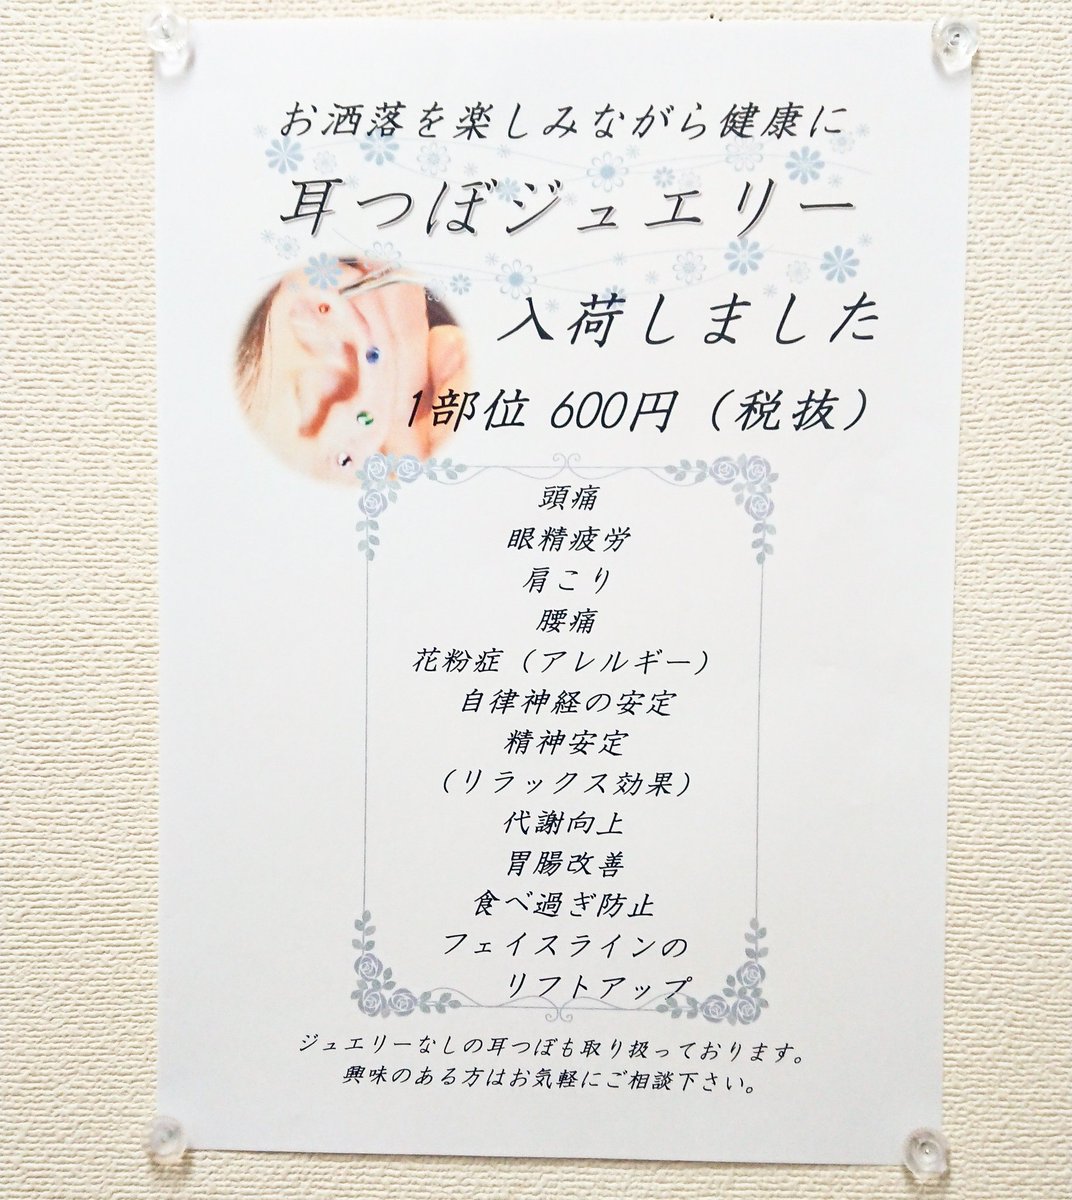 お洒落を楽しみながら健康に
耳つぼジュエリー
入荷しました
1部位 600円（税抜）
頭痛
眼精疲労
肩こり
腰痛
花粉症（アレルギー）
自律神経の安定
精神安定
（リラックス効果）
代謝向上
胃腸改善
食べ過ぎ防止
フェイスラインの
リフトアップ
ジュエリーなしの耳つぼも取り扱っております。
興味のある方はお気軽にご相談下さい。